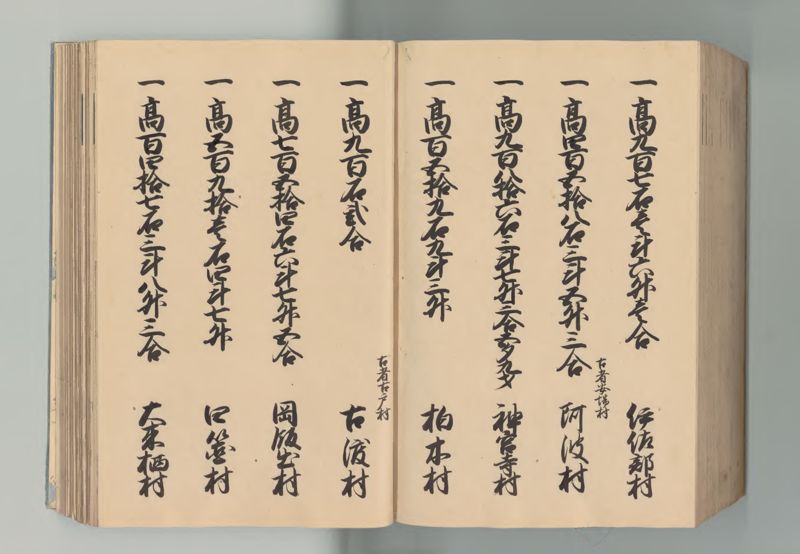 一 高九百七石壱斗六升壱合 伊佐部村
古者安場村
一 高四百五拾八石三斗五升三合 阿波村
一 高九百八拾六石三斗七升三合五夕九才 神宮寺村
一 高百五拾九石九斗三升 柏木村
古者古戸村
一 高九百石弐合 古渡村
一 高七百五拾四石六斗七升五合 岡飯出村
一 高五百九拾壱石四斗七升 四箇村
一 高百四拾七石三斗八升三合 村